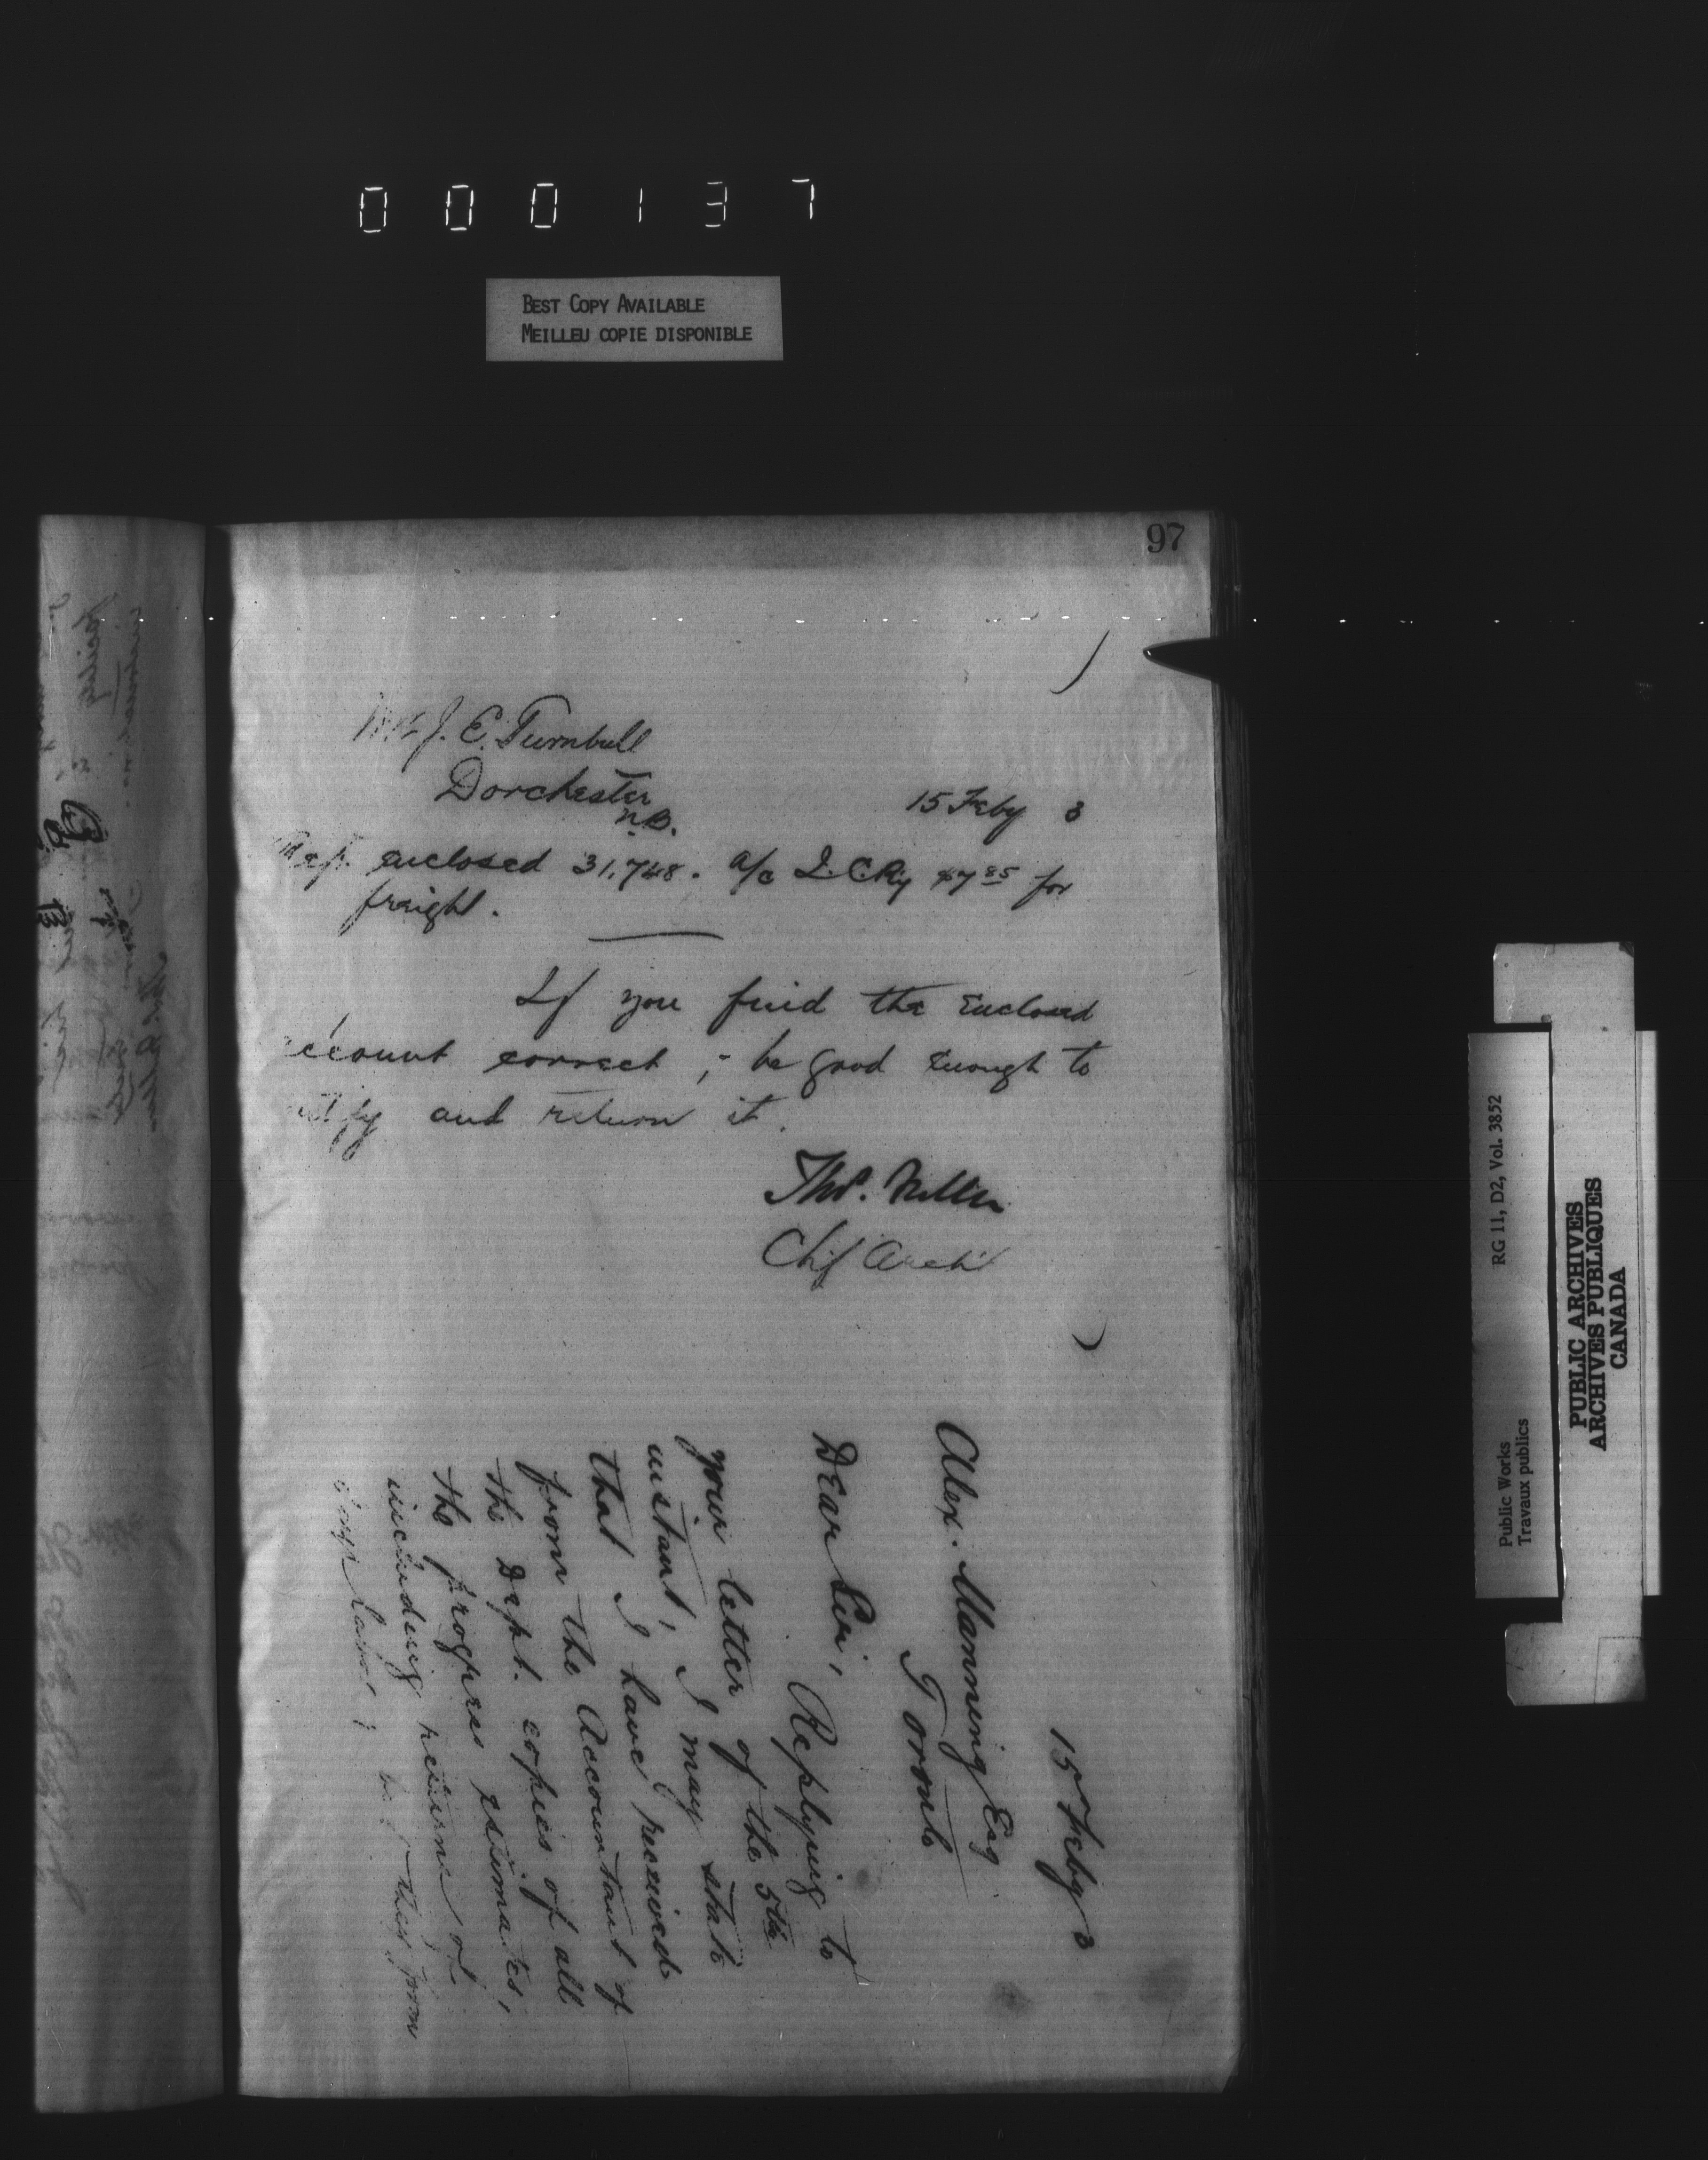 000137
BEST COPY AVAILABLE
MEILLEU COPIE DISPONIBLE
97
Mr J. E. Turnbull
Dorchester
N.B.
15 Feby 3
Ref. enclosed 31,748. a/c I.C.Ry $7 85 for
freight.
If you find the enclosed
ccount correct, be good enough to
and return it.
Thos.
Chf Archt
15 Feby 3
Alex. Manning Esq
Toronto
Dear Sir,
Replying to
your letter of the 5th
instant, I may state
that I have received
from the Accountant of
the Dept. copies of all
the progress estimates,
including returns of
from
RG 11, D2, Vol. 3852
Public Works
Travaux publics
PUBLIC ARCHIVES
ARCHIVES PUBLIQUES
CANADA